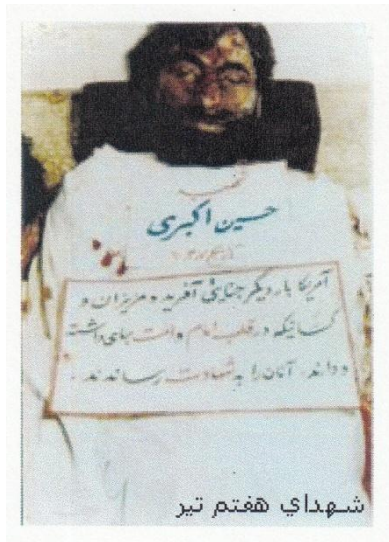 حسین اکبری
آمریکا بار دیگر جنایتی آفرید و عزیزان و
کسانیکه در قلب امام و امت جای داشته
و دارند، آنان را به شهادت رساندند.
شهداي هفتم تير